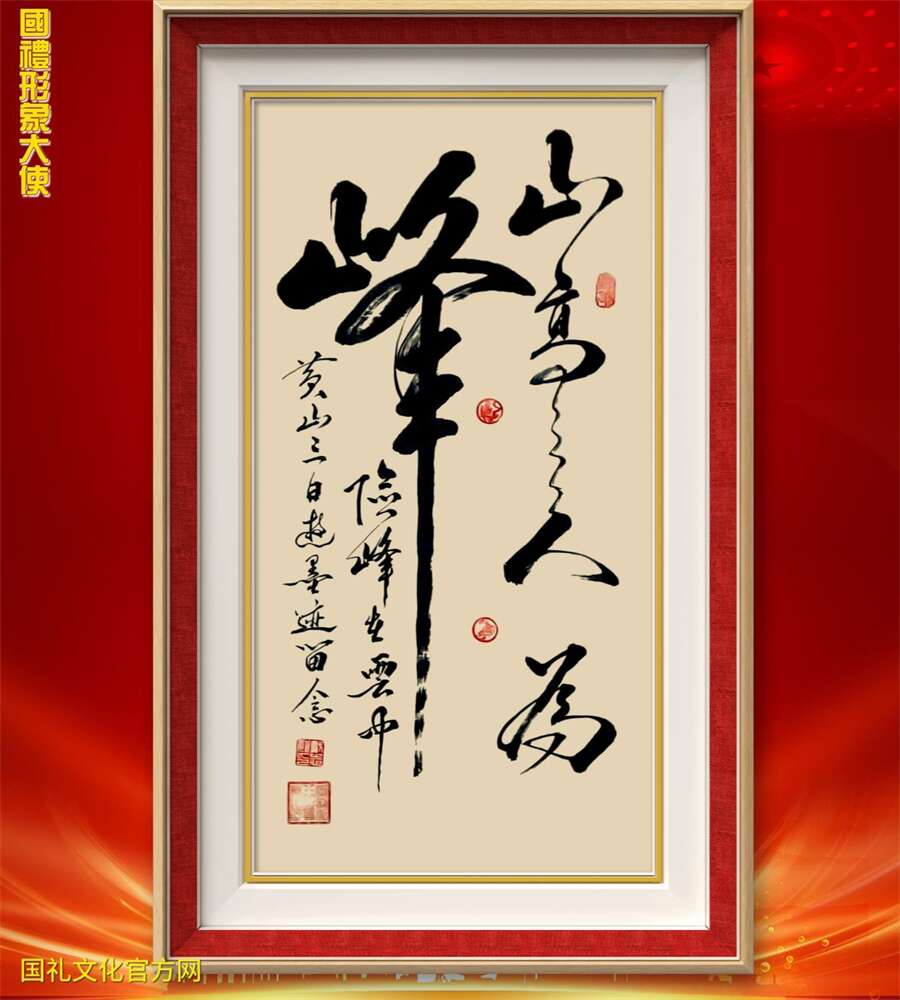 國禮形象大使
山高人為
峰
險峰在雲中
黄山三日遊墨迹留念
国礼文化官方网